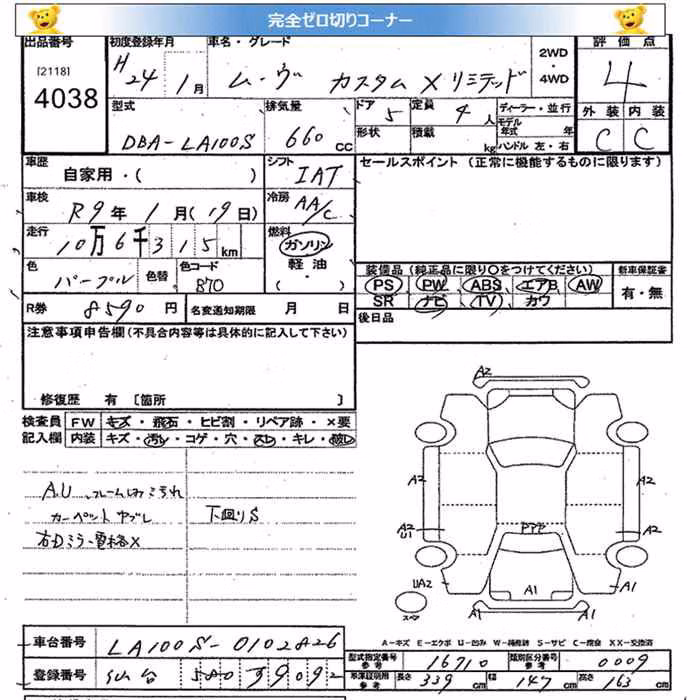 完全ゼロ切りコーナー
出品番号 初度登録年月 車名・グレード 2WD・4WD 評価点
[2118]
4038
H24 1月 ムーヴ カスタム X リミテッド 4
外装 内装
C C
型式 排気量 ドア 5 定員 4人 ディーラー・並行
DBA-LA100S 660cc 形状 積載 kg モデル年式 年
ハンドル 左・右
車歴 自家用・( ) シフト IAT セールスポイント (正常に機能するものに限ります)
車検 R9年 1月(19日) 冷房 AA/C
走行 10万6千315km 燃料 ガソリン
軽油
( ・ )
色 パープル 色替 色コード 870
装備品 (純正品に限り○をつけてください) 新車保証書
PS PW ABS エアB AW 有・無
SR ナビ TV カワ
R券 8590円 名変通知期限 月 日 後日品
注意事項申告欄(不具合内容等は具体的に記入して下さい)
修復歴 有 [箇所 ]
検査員 FW キズ・飛石・ヒビ割・リペア跡・×要
記入欄 内装 キズ・汚レ・コゲ・穴・スレ・キレ・破レ
A.U
カーペット ヤブレ 下回りS
右Dミラー電格X
A2
A2 A2
A2 U1 PPP A2
UA2 A1 A1
A1
スペア
A-キズ E-エクボ U-凹み W-補修跡 S-サビ C-腐食 XX-交換済
車台番号 LA100S-0102826
型式指定番号 参考 16710 類別区分番号 参考 0009
登録番号 仙台 580 39092
車庫証明用 参考 長さ 339cm 幅 147cm 高さ 163cm